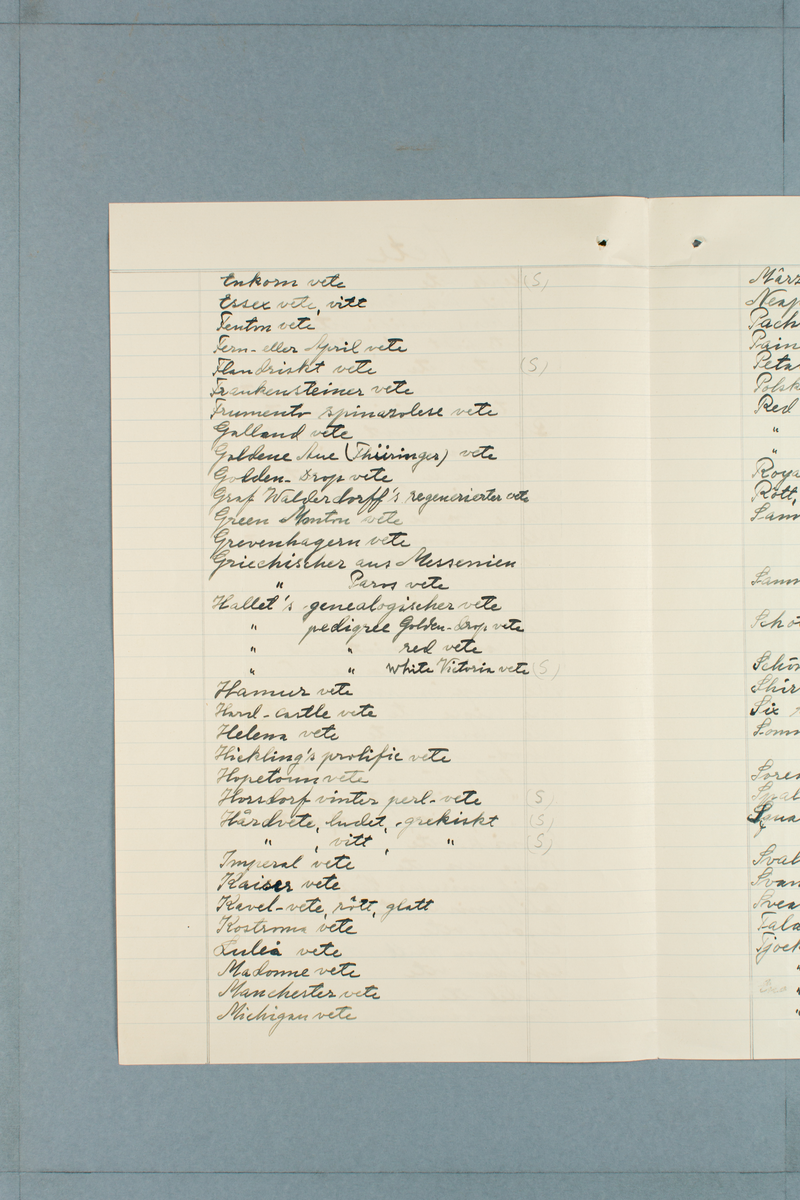 Enkorn vete (S)
Essex vete, vitt
Fenton vete
Fern- eller April vete
Flandriskt vete (S)
Frankensteiner vete
Frumento spinarolese vete
Galland vete
Goldene Aue (Thüringer) vete
Golden-Drop vete
Graf Walderdorff's regenerierter vete
Green Monton vete
Grevenhagern vete
Griechischer aus Messenien
" Paros vete
Hallet's genealogischer vete
" pedigree Golden-drop vete
" " red vete
" " White Victoria vete (S)
Hamur vete
Hard-castle vete
Helena vete
Hickling's prolific vete
Hopetoun vete
Horsdorf vinter perl-vete (S)
Hårdvete, ludet, -grekiskt (S)
" , vitt , " (S)
Imperal vete
Kaiser vete
Kavel-vete, rött, glatt
Kostroma vete
Luleå vete
Madonne vete
Manchester vete
Michigan vete
März
Neap
Pach
Pain
Peta
Polsk
Red
"
"
Roya
Rött,
Sam
Samm
Scho
Schön
Shir
Six
Somm
Soren
Squa
Sval
Svan
Svea
Tala
Tjock
"
"
"